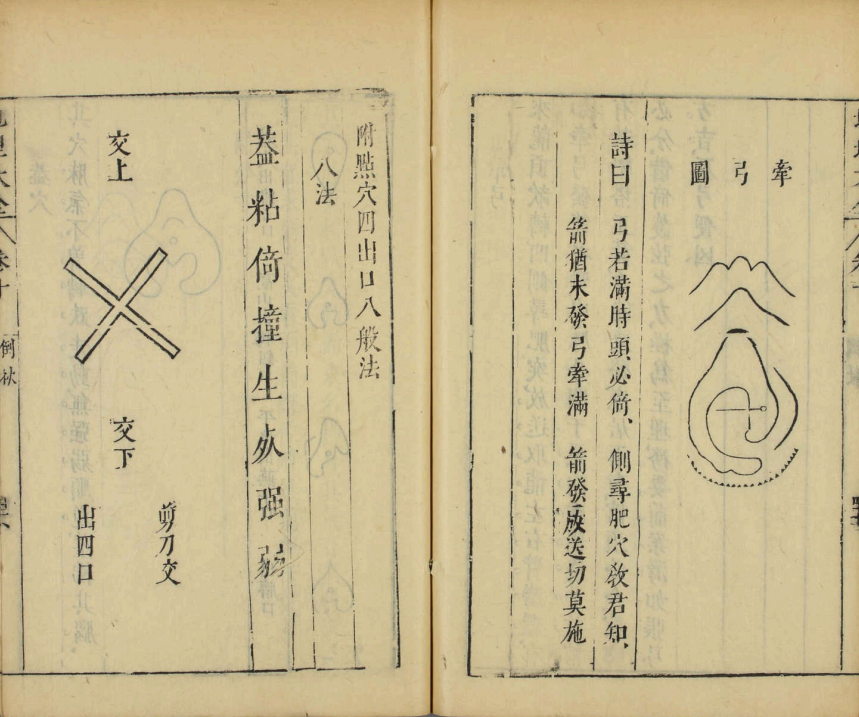 牽弓圖
詩曰 弓若滿時頭必倚 側尋肥穴教君知
箭猶未發弓牽滿 箭發放送切莫施
附點穴四出口八般法
八法
葢粘倚撞生死强弱
交上
交下
剪刀交
出四口
倒杖